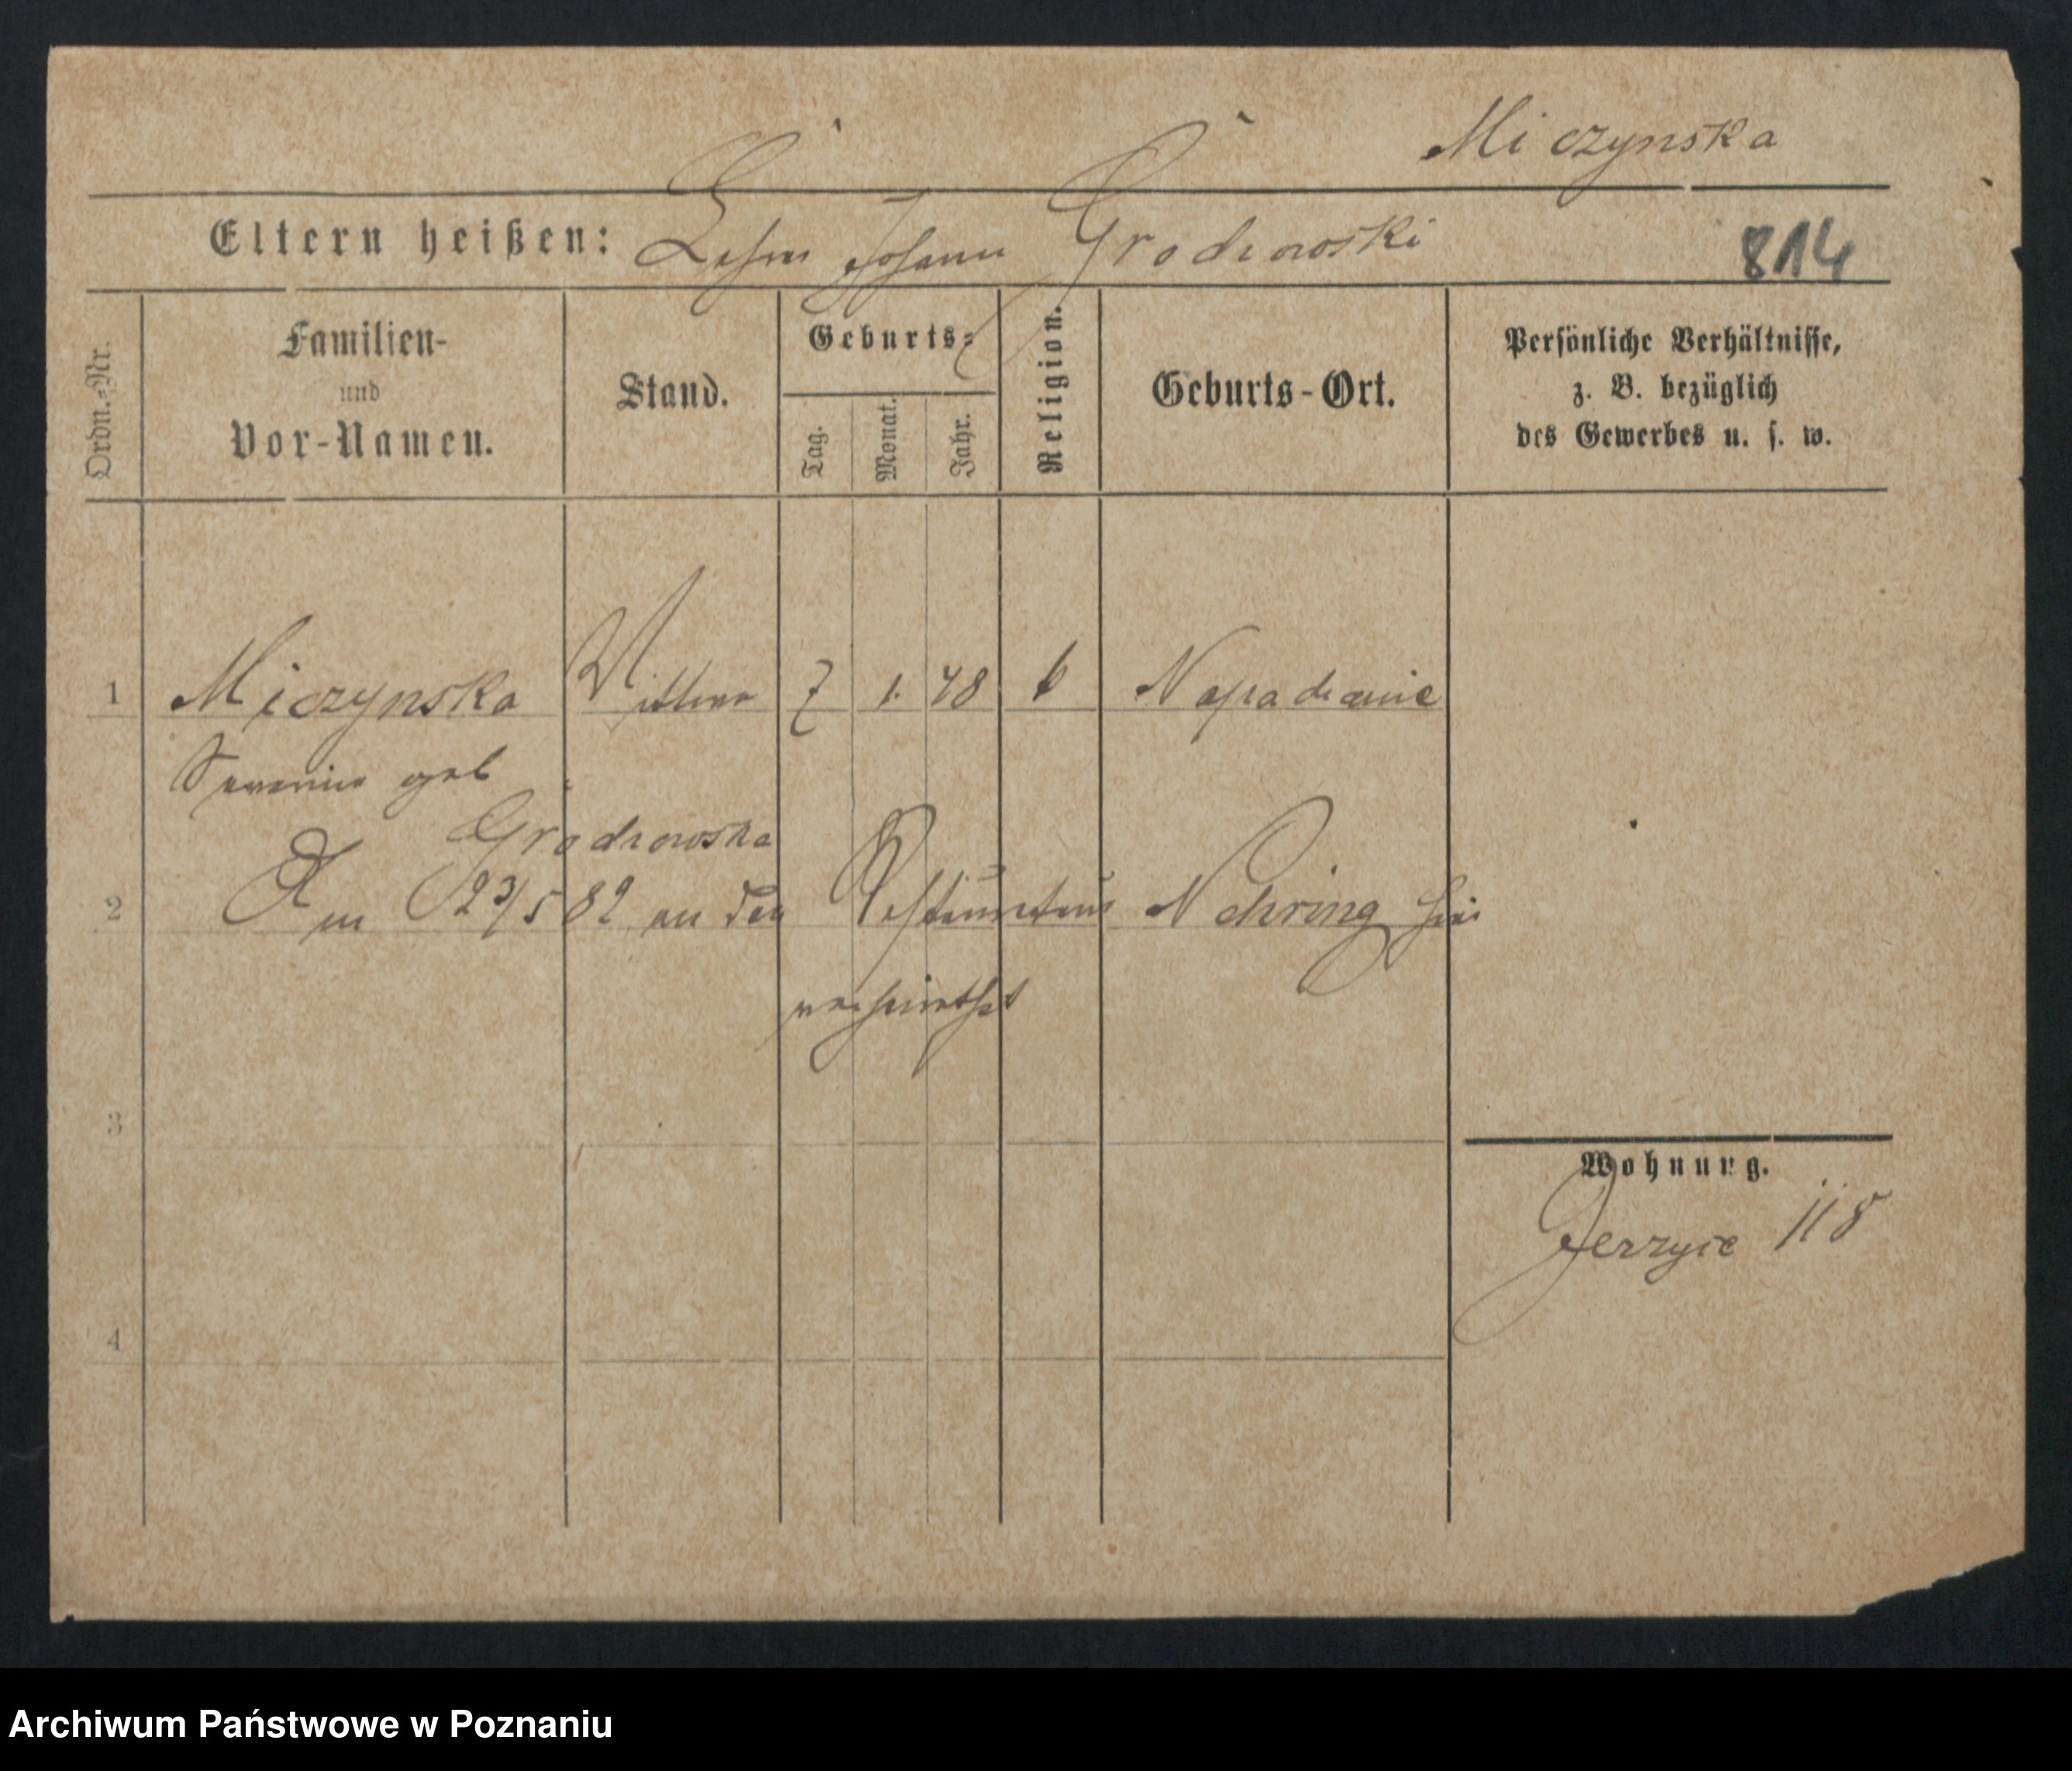 Miczynska
Eltern heißen: Johann Grodzowski
814
Ordn.-Nr.
Familien-
und
Vor-Namen.
Stand.
Geburts-
Tag.
Monat.
Jahr.
Religion.
Geburts-Ort.
Persönliche Verhältnisse,
z. B. bezüglich
des Gewerbes u. s. w.
1 Miczynska Wittwe 7 1. 48 k Napachanie
geb
Grodzowska
2 Am 23/5 82 an den Restaurateur Nehring hier
verheirathet
3
Wohnung.
Jerzyce 118
4
Archiwum Państwowe w Poznaniu